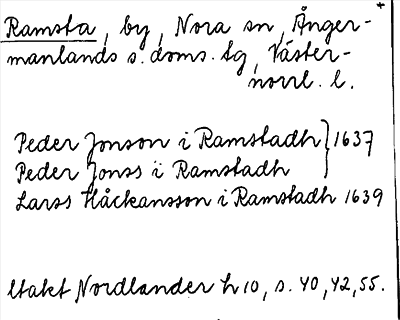 Ramsta, by, Nora sn, Ånger-
manlands s. doms. tg, Väster-
norrl. l.
Peder Jonson i Ramstadh } 1637
Peder Jonss i Ramstadh
Larss Håckansson i Ramstadh 1639
Utakt Nordlander h 10, s. 40, 42, 55.